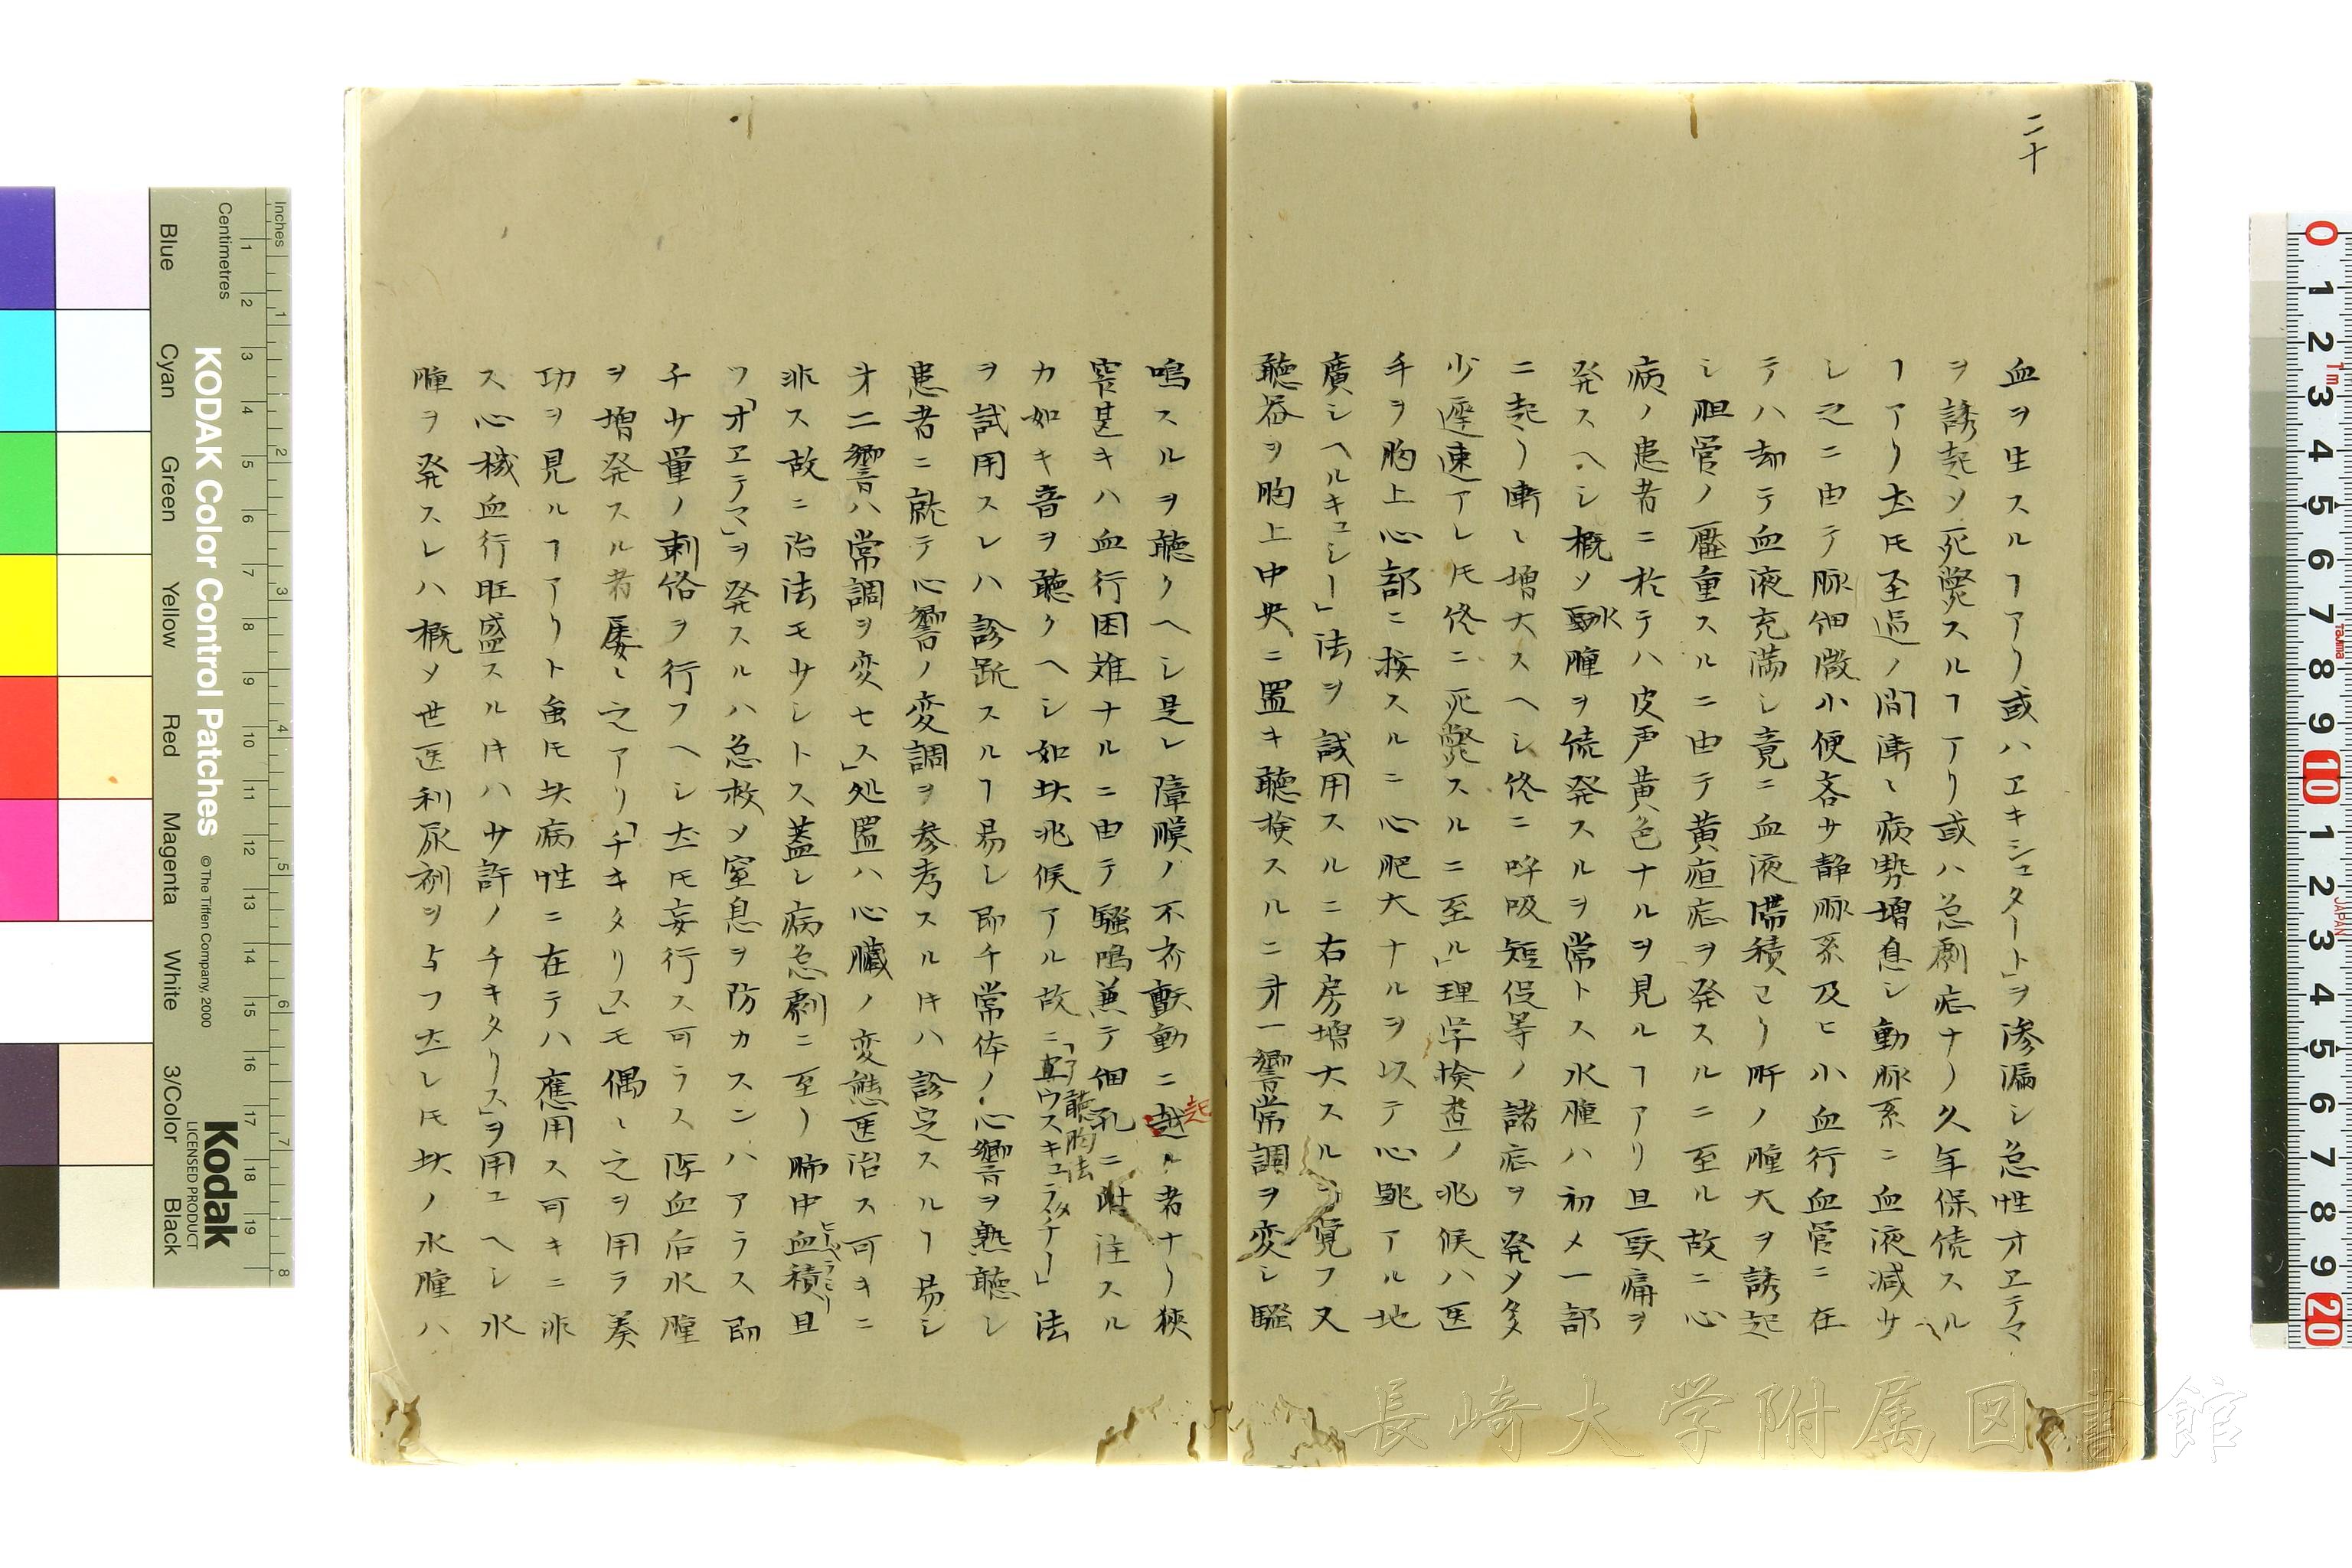 二十
血ヲ生スルヿアリ或ハエキシュタート」ヲ滲漏シ急性オエテマ
ヲ誘起ソ死斃スルヿアリ或ハ急劇症ナリ久年保続スル
ヿアリ𪜈至過ノ間漸〻病勢増息シ動脈系ニ血液減サ
シ之ニ由テ脉細微小便吝サ静脈系及ヒ小血行血管ニ在
テハ却テ血液充満シ竟ニ血液鬱積ヒリ肝ノ腫大ヲ誘起
シ胆管ノ壓重スルニ由テ黄疸症ヲ発スルニ至ル故ニ心
病ノ患者ニ於テハ皮声黄色ナルヲ見ルヿアリ且頭痛ヲ
発スヘシ概ソ水腫ヲ続発スルヲ常トス水腫ハ初メ一部
ニ起リ漸〻増大スヘシ终ニ呼吸短促等ノ諸症ヲ発メ多
少遲速アレ𪜈终ニ死斃スルニ至ル」理学検査ノ兆候ハ医
手ヲ胸上心部ニ按スルニ心肥大ナルヲ以テ心跳アル地
廣シヘルキュシー」法ヲ試用スルニ右房増大スルヲ覚フ又
聴器ヲ胸上中央ニ置キ聴検スルニ才一響常調ヲ変シ騒
鳴スルヲ聴クヘシ是レ障膜ノ不斉戰動ニ越ル者ナリ狹
起
窄甚キハ血行困難ナルニ由テ騒鳴兼テ細孔ニ附注スル
カ如キ音ヲ聴クヘシ如此兆候アル故ニ「真ウスキュラメチー」法
聴胸法
ヲ試用スレハ診断スルヿ易シ即チ常体ノ心響音ヲ熟聴シ
患者ニ就テ心響ノ変調ヲ参考スル𪜈ハ診定スルヿ易シ
才二響ハ常調ヲ変セス」処置ハ心臓ノ変態医治ス可キニ
非ス故ニ治法モサシトス蓋シ病急劇ニ至リ肺中血積且
ヒペラミー
ツ「オエテマ」ヲ発スルハ急救メ窒息ヲ防カスンハアラス即
チサ量ノ刺絡ヲ行フヘシ𪜈妄行ス可ラス瀉血后水腫
ヲ増発スル者屡〻之アリ「チキタリス」モ偶〻之ヲ用ラ奏
功ヲ見ルヿアリト虽𪜈此病性ニ在テハ應用ス可キニ非
ス心機血行旺盛スル𪜈ハサ許ノチキタリス」ヲ用ユヘシ水
腫ヲ発スレハ概メ世医利尿剤ヲ与フ𪜈レ𪜈此ノ水腫ハ